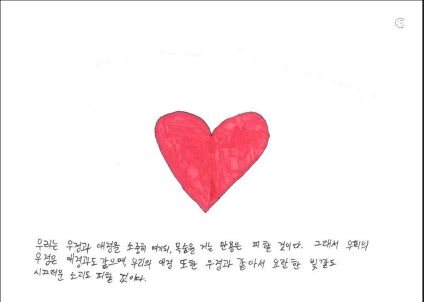 우리는 우정과 애정을 소중히 여기되, 목숨을 거는 만용은 피할 것이다. 그래서 우리의
우정은 애정과도 같으며, 우리의 애정 또한 우정과 같아서 요란한 빛깔도
시끄러운 소리도 피할 것이다.